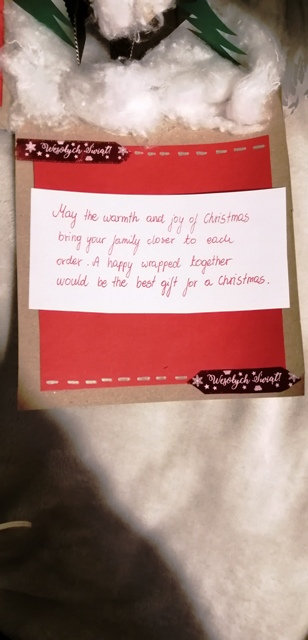 Wesołych Świąt!
May the warmth and joy of Christmas
bring your family closer to each
order. A happy wrapped together
would be the best gift for a Christmas.
Wesołych Świąt!